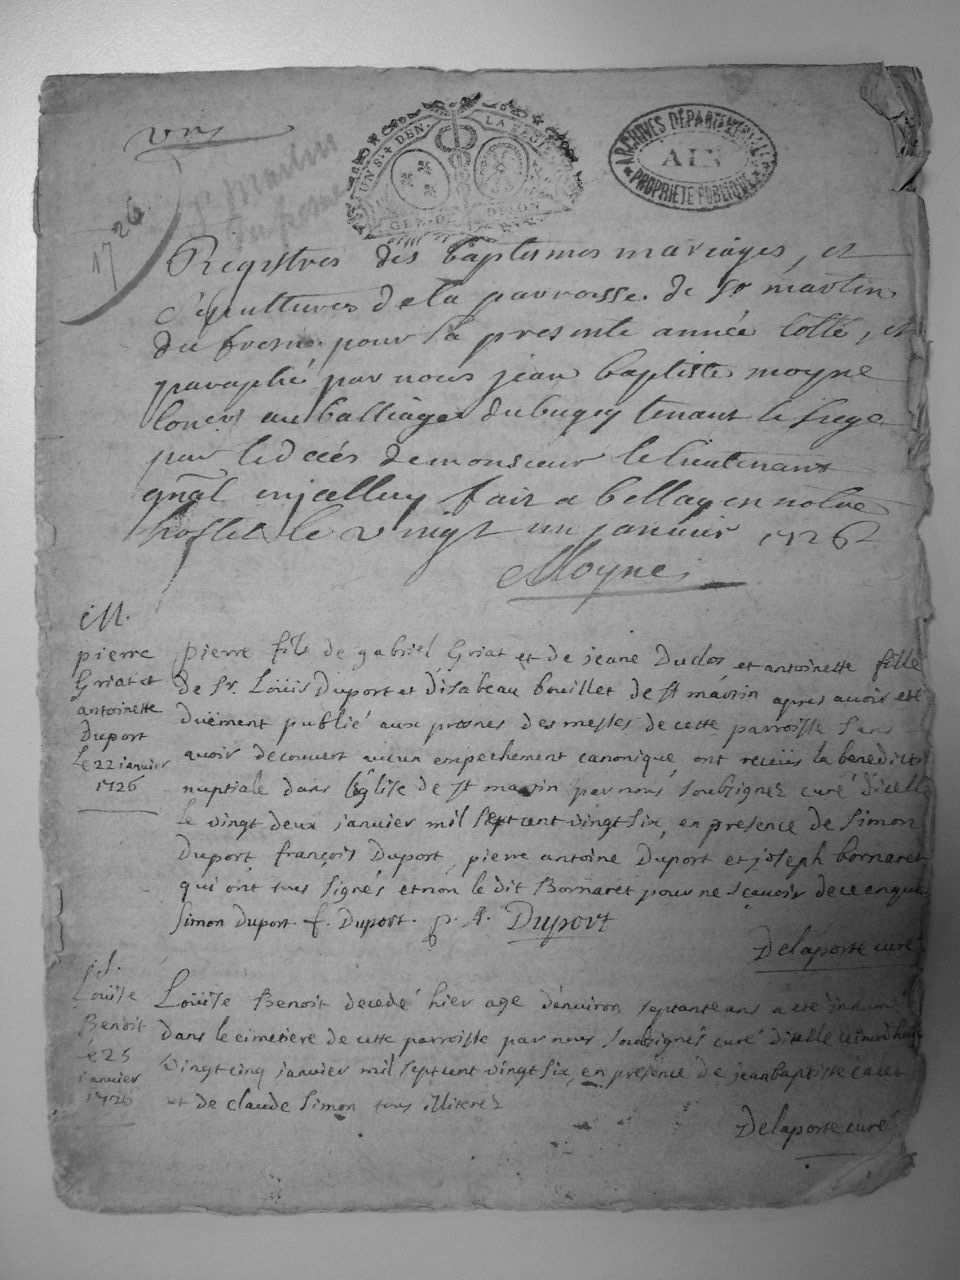 un
1726
St Martin
du fresne
UN S. 4 DEN. LA FEUILLE
GEN. DE DIJON
ARCHIVES DÉPARTEMENTALES
AIN
PROPRIÉTÉ PUBLIQUE
Registres des baptesmes mariages, et
sépultures de la parroisse de St martin
du fresne pour la presente année cotté, et
paraphé par nous jean baptiste moyne
au balliage du bugey tenant le siege
par le décés de monsieur le lieutenant
gnãl fait a bellay en notre
hostel le vingt un janvier 1726
Moyne
M.
pierre
Griat et
antoinette
Duport
le 22 janvier
1726
pierre fils de gabriel Griat et de jeane Duclos et antoinette fille
de Sr. Loüis Duport et d'isabeau bouillet de st martin apres avoir été
duëment publié aux prosnes des messes de cette parroisse sans
avoir découvert aucun empechement canonique, ont receüs la benedict
nuptiale dans l'église de st martin par nous soubsignez curé d'icelle
le vingt deux janvier mil sept cent vingt six, en presence de simon
Duport, françois Duport, pierre antoine Duport et joseph bornaret
qui ont tous signés et non le dit Bornaret pour ne sçavoir de ce enquis
simon duport. f. Duport. p. A. Duport
Delaporte curé
Loüise
Benoit
le 25
janvier
1726
Loüise Benoit decedé hier age d'environ septante ans a été inhumé
dans le cimetiere de cette parroisse par nous soussignés curé d'icelle cejourd'huy
vingt cinq janvier mil sept cent vingt six, en présence de jean baptiste
et de claude simon tous illiterez
Delaporte curé